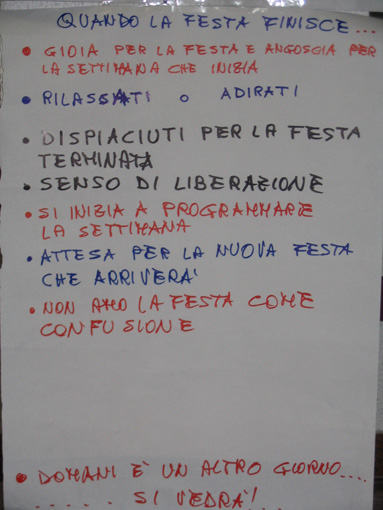 QUANDO LA FESTA FINISCE...
• GIOIA PER LA FESTA E ANGOSCIA PER
LA SETTIMANA CHE INIZIA
• RILASSATI O ADIRATI
• DISPIACIUTI PER LA FESTA
TERMINATA
• SENSO DI LIBERAZIONE
• SI INIZIA A PROGRAMMARE
LA SETTIMANA
• ATTESA PER LA NUOVA FESTA
CHE ARRIVERA'
• NON AMO LA FESTA COME
CONFUSIONE
• DOMANI E' UN ALTRO GIORNO....
..... SI VEDRA'!